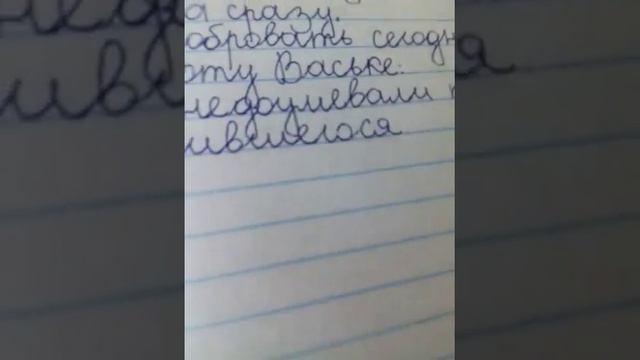 а сразу.
обровать сегодн
оту Ваське.
недоумевали
ившегося